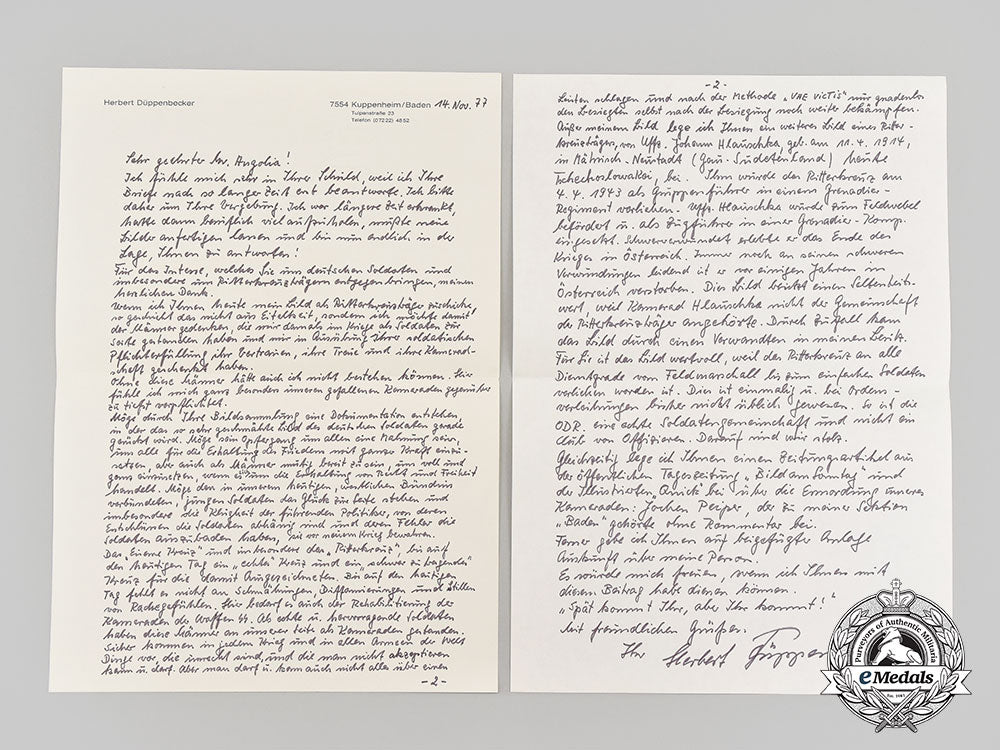 Herbert Düppenbecker
7554 Kuppenheim/Baden 14. Nov. 77
Tulpenstraße 23
Telefon (07222) 4852
Sehr geehrter Mr. Angolia!
Ich fühle mich sehr in Ihrer Schuld, weil ich Ihre
Briefe nach so langer Zeit erst beantworte. Ich bitte
daher um Ihre Vergebung. Ich war längere Zeit erkrankt,
hatte dann beruflich viel aufzuholen, mußte meine
Bilder anfertigen lassen und bin nun endlich in der
Lage, Ihnen zu antworten!
Für das Interesse, welches Sie uns deutschen Soldaten und
insbesondere uns Ritterkreuzträgern entgegen bringen, meinen
herzlichen Dank.
Wenn ich Ihnen heute mein Bild als Ritterkreuzträger zuschicke,
so geschieht das nicht aus Eitelkeit, sondern ich möchte damit
der Männer gedenken, die mir damals im Kriege als Soldaten zur
Seite gestanden haben und mir in Ausübung Ihrer soldatischen
Pflichterfüllung ihr Vertrauen, ihre Treue und ihre Kamerad-
schaft geschenkt haben.
Ohne diese Männer hätte auch ich nicht bestehen können. Hier
fühle ich mich ganz besonders unseren gefallenen Kameraden gegenüber
zu tiefst verpflichtet.
Möge durch Ihre Bildsammlung eine Dokumentation entstehen,
in der das so sehr geschmähte Bild des deutschen Soldaten gerade
gerückt wird. Möge sein Opfergang uns allen eine Mahnung sein,
uns alle für die Erhaltung des Friedens mit ganzer Kraft einzu-
setzen, aber auch als Männer mutig bereit zu sein, uns voll und
ganz einzusetzen, wenn es um die Erhaltung von Recht und Freiheit
handelt. Möge den in unserem heutigen, westlichen Bündnis
verbündeten, jungen Soldaten das Glück zur Seite stehen und
insbesondere die Klugheit der führenden Politiker, von deren
Entschlüssen die Soldaten abhängig sind und deren Fehler die
Soldaten auszubaden haben, sie vor neuem Krieg bewahren.
Das "Eiserne Kreuz" und insbesondere das "Ritterkreuz", bis auf
den heutigen Tag ein "echtes" Kreuz und ein "schwer zu tragendes"
Kreuz für die damit Ausgezeichneten. Bis auf den heutigen
Tag fehlt es nicht an Schmähungen, Diffamierungen und Stillen
von Rachegefühlen. Hier bedarf es auch der Rehabilitierung der
Kameraden der Waffen SS. Als echte u. hervorragende Soldaten
haben diese Männer an unserer Seite als Kameraden gestanden.
Sicher kommen in jedem Krieg und in allen Armeen der Welt
Dinge vor, die unrecht sind, und die man nicht akzeptieren
kann u. darf. Aber man darf u. kann auch nicht alles über einen
- 2 -
- 2 -
Leisten schlagen und nach der Methode "VAE VICTIS" nur gnadenlos
den Besiegten selbst nach der Besiegung noch weiter bekämpfen.
Außer meinem Bild lege ich Ihnen ein weiteres Bild eines Ritter-
kreuzträgers, von Uffz. Johann Hlauschka, geb. am 11.4.1914,
in Mährisch-Neustadt (Gau-Sudetenland) heute
Tschechoslowakei, bei. Ihm wurde das Ritterkreuz am
4.4.1943 als Gruppenführer in einem Grenadier-
Regiment verliehen. Uffz. Hlauschka wurde zum Feldwebel
befördert u. als Zugführer in einer Grenadier-Komp.
eingesetzt. Schwerverwundet erlebte er das Ende des
Krieges in Österreich. Immer noch an seinen schweren
Verwundungen leidend ist er vor einigen Jahren in
Österreich verstorben. Dies Bild besitzt einen Seltenheits-
wert, weil Kamerad Hlauschka nicht der Gemeinschaft
der Ritterkreuzträger angehörte. Durch Zufall kam
das Bild durch einen Verwandten in meinen Besitz.
Für Sie ist das Bild wertvoll, weil das Ritterkreuz an alle
Dienstgrade vom Feldmarschall bis zum einfachen Soldaten
verliehen worden ist. Dies ist einmalig u. bei Ordens-
verleihungen bisher nicht üblich gewesen. So ist die
ODR. eine echte Soldatengemeinschaft und nicht ein
Club von Offizieren. Darauf sind wir stolz.
Gleichzeitig lege ich Ihnen einen Zeitungsartikel aus
der öffentlichen Tageszeitung "Bild am Sonntag" und
der Illustrierten "Quick" bei über die Ermordung unseres
Kameraden: Jochen Peiper, der zu meiner Sektion
"Baden" gehörte ohne Kommentar bei.
Ferner gebe ich Ihnen auf beigefügter Anlage
Auskunft über meine Person.
Es würde mich freuen, wenn ich Ihnen mit
diesem Beitrag habe dienen können.
"Spät kommt Ihr, aber Ihr kommt!"
Mit freundlichen Grüßen.
Ihr Herbert
Purveyors of Authentic Militaria
eMedals